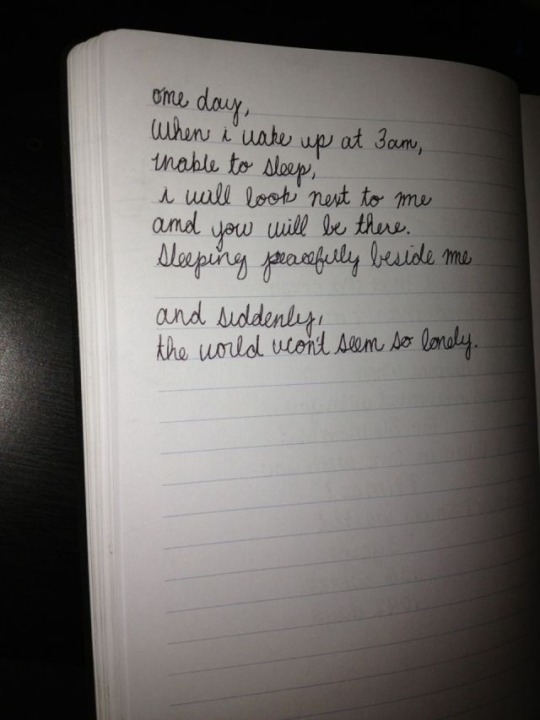 one day,
when i wake up at 3am,
unable to sleep,
i will look next to me
and you will be there.
sleeping peacefully beside me
and suddenly,
the world won't seem so lonely.